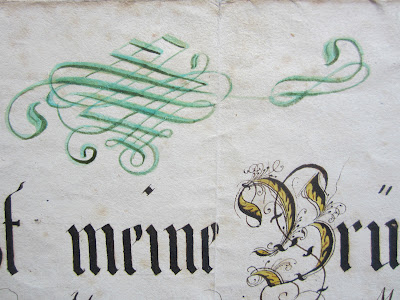 st meine Brü